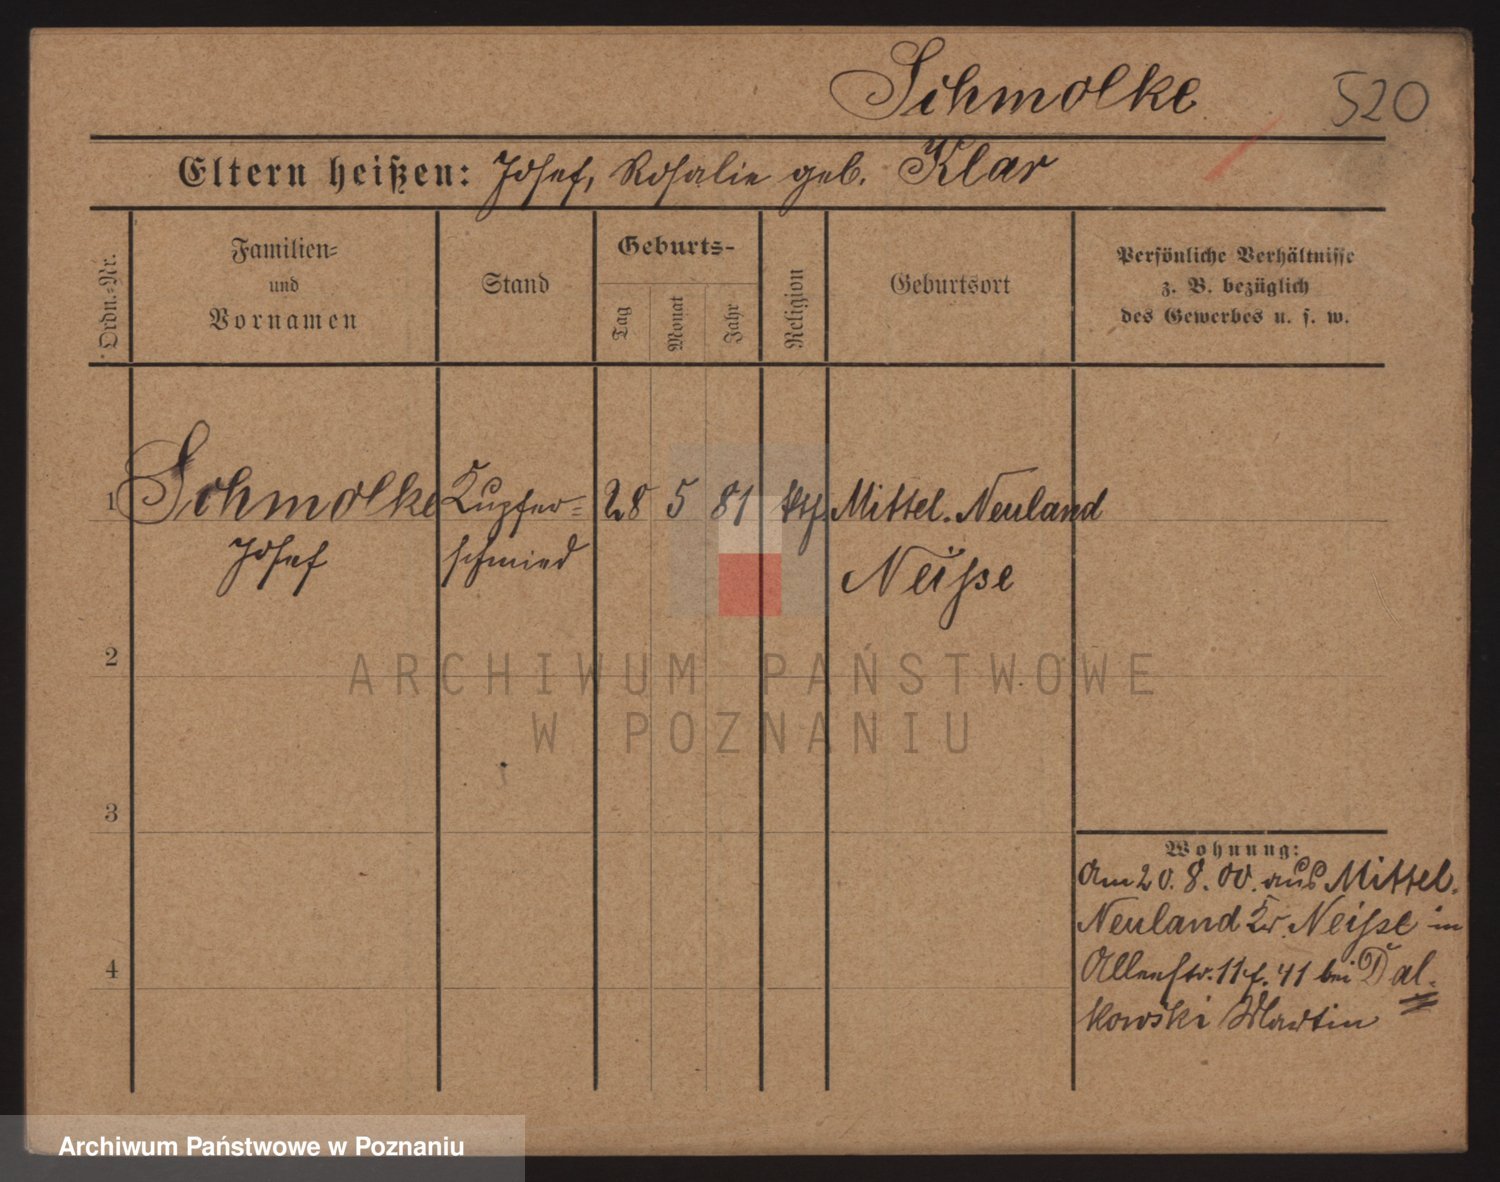 Schmolke 520
Eltern heißen: Josef, Rosalie geb. Klar
Ordn.-Nr.
Familien-
und
Vornamen
Stand
Geburts-
Tag
Monat
Jahr
Religion
Geburtsort
Persönliche Verhältnisse
z. B. bezüglich
des Gewerbes u. s. w.
1 Schmolke Kupfer= 28 5 81 kth. Mittel-Neuland
Josef schmied Neiße
2
ARCHIWUM PAŃSTWOWE
W POZNANIU
3
Wohnung:
Am 20.8.00. aus Mittel-
Neuland Kr. Neiße in
4
Allenstr. 11 f. 41 bei Dal-
kowski Martin
Archiwum Państwowe w Poznaniu